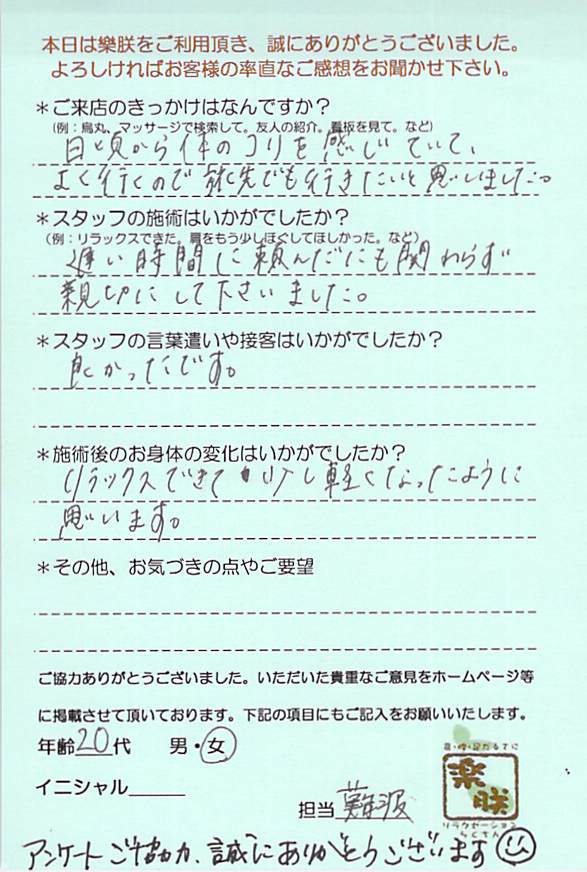 本日は樂朕をご利用頂き、誠にありがとうございました。
よろしければお客様の率直なご感想をお聞かせ下さい。
＊ご来店のきっかけはなんですか？
（例：烏丸、マッサージで検索して。友人の紹介。看板を見て。など）
日頃から体のコリを感じていて、
よく行くので旅先でも行きたいと思いました。
＊スタッフの施術はいかがでしたか？
（例：リラックスできた。肩をもう少しほぐしてほしかった。など）
遅い時間に頼んだにも関わらず
親切にして下さいました。
＊スタッフの言葉遣いや接客はいかがでしたか？
良かったです。
＊施術後のお身体の変化はいかがでしたか？
リラックスできて少し軽くなったように
思います。
＊その他、お気づきの点やご要望
ご協力ありがとうございました。いただいた貴重なご意見をホームページ等
に掲載させて頂いております。下記の項目にもご記入をお願いいたします。
年齢20代 男・女
イニシャル
担当 難波
樂朕
リラクゼーション
らくちん
アンケートご協力、誠にありがとうございます